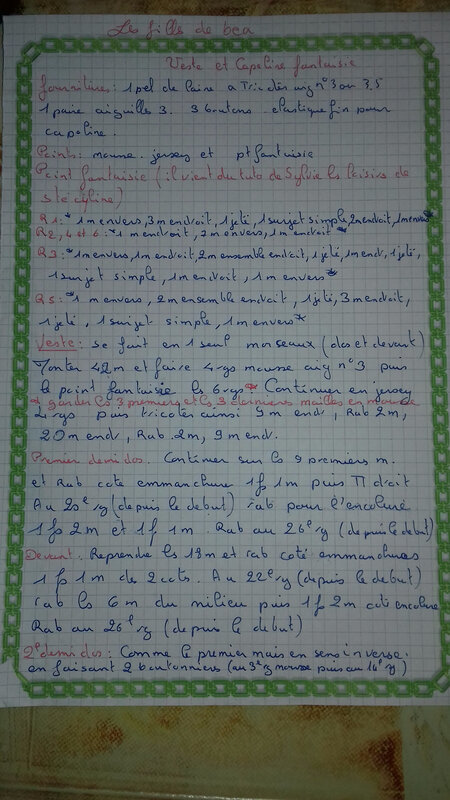 Les filles de bea
Veste et Capeline fantaisie
fournitures: 1 pel de laine a Tricoter aig n°3 ou 3.5
1 paire aiguilles 3. 3 boutons. elastique fin pour
capeline.
Points: mousse. jersey et pt fantaisie
Point fantaisie (il vient du tuto de Sylvie les loisirs de
R1: *1m envers, 3m endroit, 1 jeté, 1 surjet simple, 2m endroit, 1m envers*
R2, 4 et 6: *1m endroit, 7m envers, 1m endroit*
R3: *1m envers, 1m endroit, 2m ensemble endroit, 1 jeté, 1m endr, 1 jeté,
1 surjet simple, 1m endroit, 1m envers*
R5: *1m envers, 2m ensemble endroit, 1 jeté, 3m endroit,
1 jeté, 1 surjet simple, 1m envers*
Veste: se fait en 1 seul morseaux (dos et devant)
Monter 42m et faire 4 rgs mousse aig n°3 puis
le point fantaisie les 6 rgs * Continuer en jersey
* garder les 3 premiers et les 3 derniers mailles en mousse
4 rgs puis tricoter ainsi 9m endr, Rab 2m,
20m endr, Rab 2m, 9m endr.
Premier demi dos. Continuer sur les 9 premiers m.
et Rab cote emmanchure 1f 1m puis TT droit
Au 20e rg (depuis le debut) rab pour l'encolure
1f 2m et 1f 1m. Rab au 26e rg (depuis le debut)
Devant. Reprendre les 18m et rab coté emmanchures
1f 1m de 2 cots. Au 22e rg (depuis le debut)
rab les 6m du milieu puis 1f 2m coté encolure
Rab au 26e rg (depuis le debut)
2e demi dos: Comme le premier mais en sens inverse.
en faisant 2 boutonniers (au 3e rg mousse puis au 14e rg)